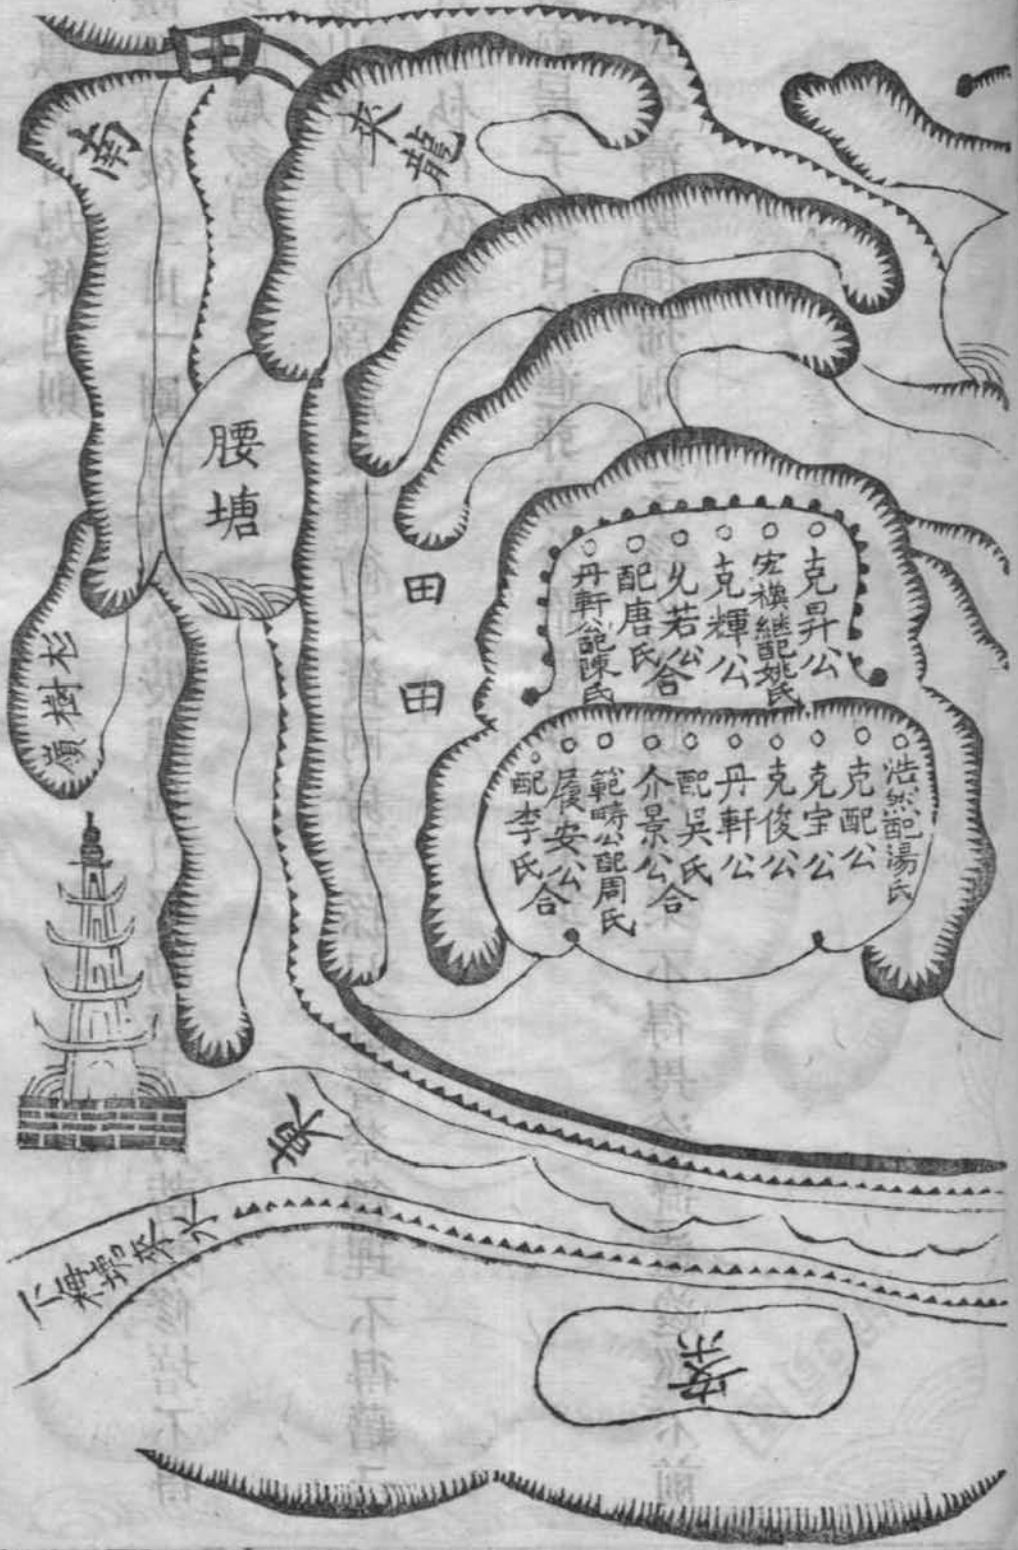 田
南
來龍
腰塘
田
田
杉樹嶺
克昇公
宏模継配姚氏
克輝公
允若公合
配唐氏
丹軒公配陳氏
浩然配湯氏
克配公
克宝公
克俊公
丹軒公
配吳氏合
介景公
範疇公配周氏
履安公合
配李氏
東
來水
案